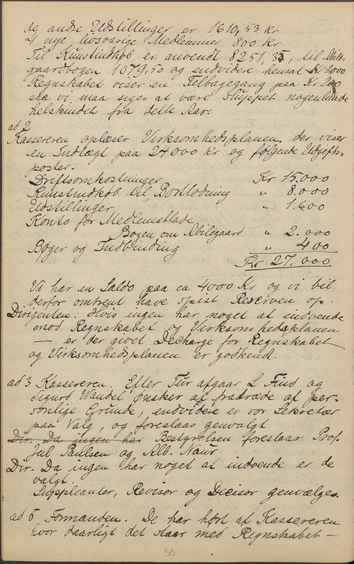 og andre Udstillinger er 1610,53 kr
2 nye livsvarige Medlemmer 800 kr.
Til Kunstindkøb er anvendt 8251,35, til Abild-
gaardbogen 1073,50 og endvidere henlagt Kr 2000
Regnskabet viser en Tilbagegang paa Kr
saa vi maa siges at være sluppet nogenlunde
helskindet fra dette Aar.
ad 2
Kassereren oplæser Virksomhedsplanen der viser
en Indtægt paa 24.000 Kr og følgende Udgifts-
poster.
Driftsomkostninger Kr 15.000
Kunstindkøb til Bortlodning " 8.000
Udstillinger " 1.600
Konto for Medlemsblade
Bogen om Abilgaard " 2.000
Bøger og Indbinding " 400
Kr. 27.000
Vi har en Saldo paa ca 4000 Kr og vi vil
derfor omtrent have spist Reserven op.
Dirigenten: Hvis ingen har noget at indvende
mod Regnskabet og Virksomhedsplanen
— er der givet Decharge for Regnskabet
og Virksomhedsplanen er godkendt.
ad 3 Kassereren. Efter Tur afgaar L. Find og
Sigurd Wandel ønsker at fratræde af per-
sonlige Grunde, endvidere er vor Sekretær
paa Valg, og foreslaas genvalgt
Dir. Da ingen har Bestyrelsen foreslaar Prof.
Jul Paulsen og Alb. Naur
Dir. Da ingen har noget at indvende er de
valgt.
Suppleanter, Revisor og Decisor genvælges
ad 5 Formanden. De har hørt af Kassereren
hvor daarligt det staar med Regnskabet —